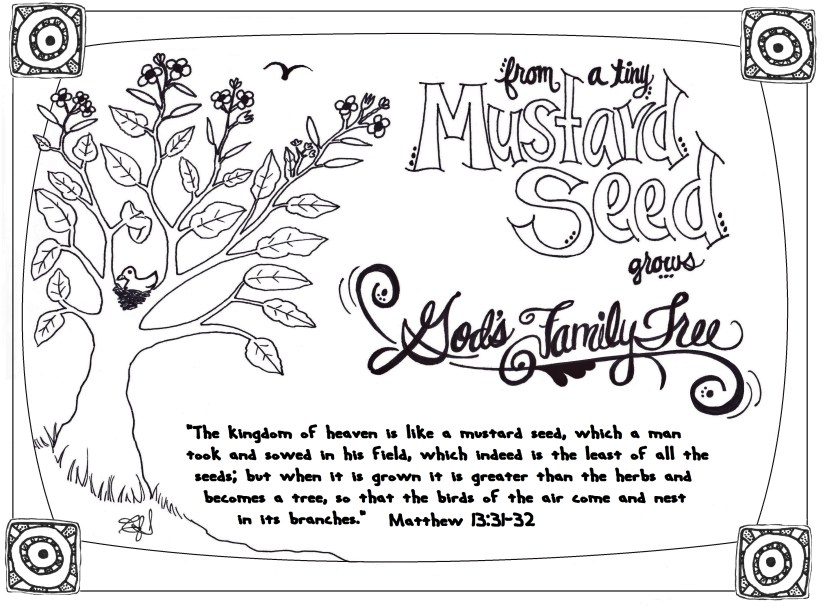 from a tiny
Mustard
Seed
grows
God's Family Tree
"The kingdom of heaven is like a mustard seed, which a man
took and sowed in his field, which indeed is the least of all the
seeds; but when it is grown it is greater than the herbs and
becomes a tree, so that the birds of the air come and nest
in its branches." Matthew 13:31-32